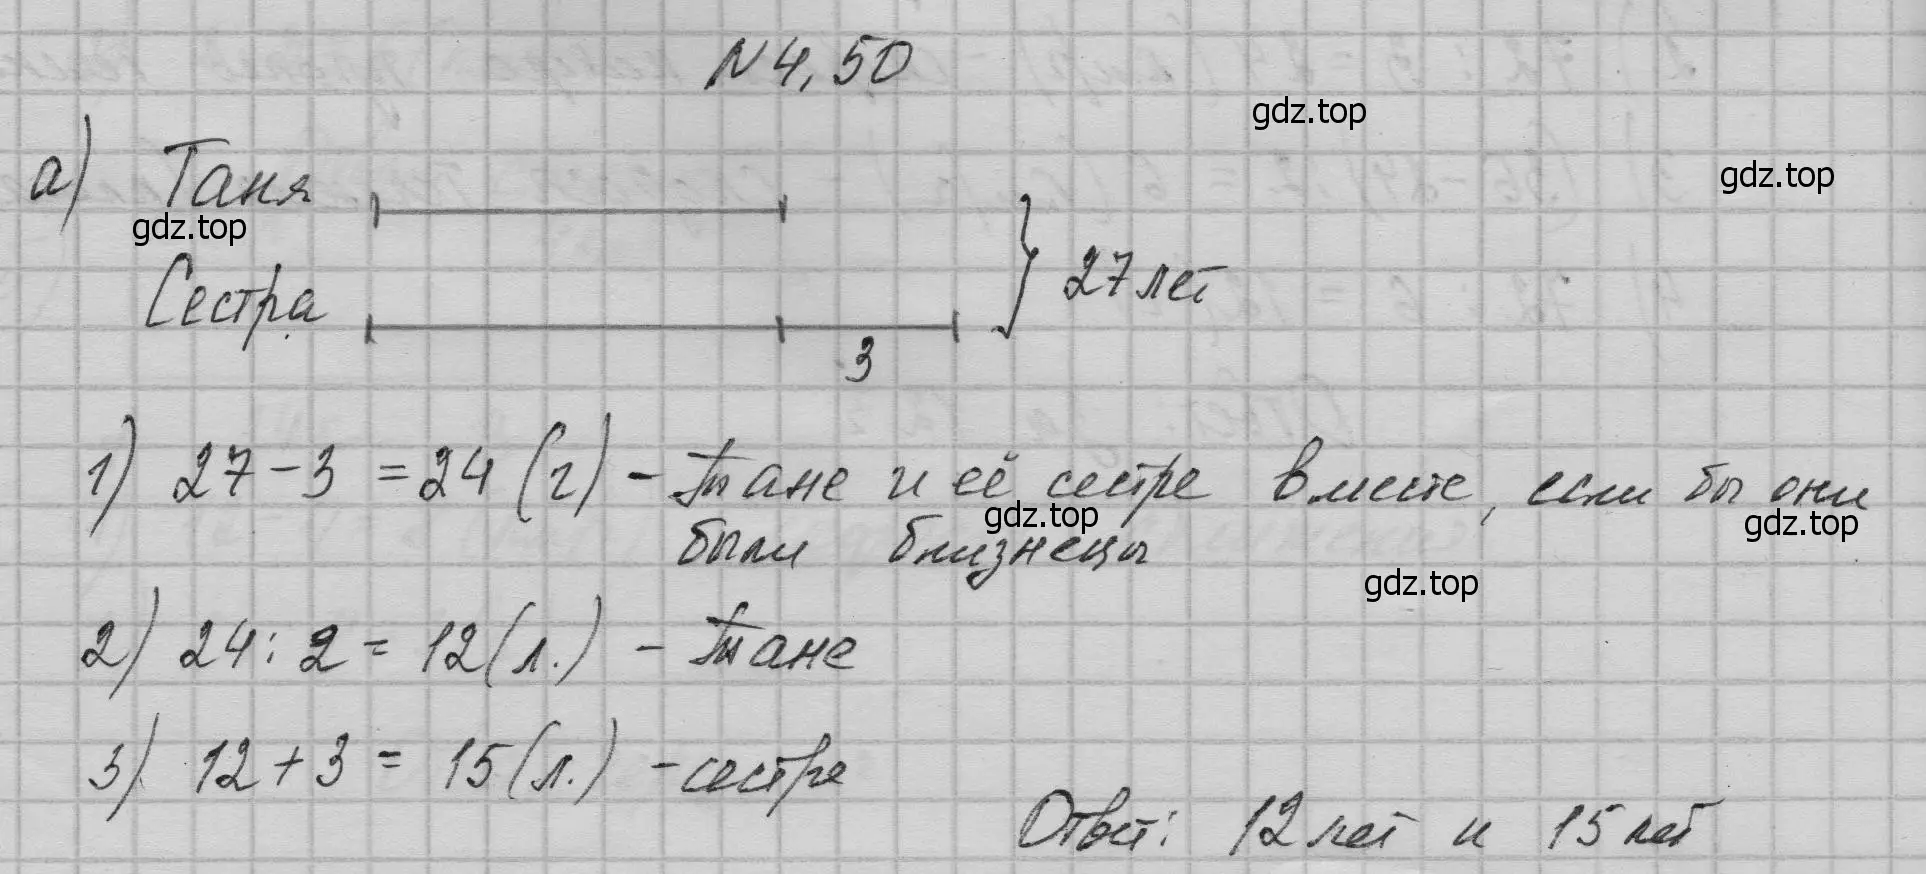 N 4,50
gdz.top
а) Таня
gdz.top
gdz.top
Сестра
3
} 27 лет
1) 27 - 3 = 24 (г) - Тане и её сестре вместе, если бы они
gdz.top
gdz.top
были близнецы
gdz.top
2) 24 : 2 = 12 (л.) - Тане
3) 12 + 3 = 15 (л.) - сестре
Ответ: 12 лет и 15 лет